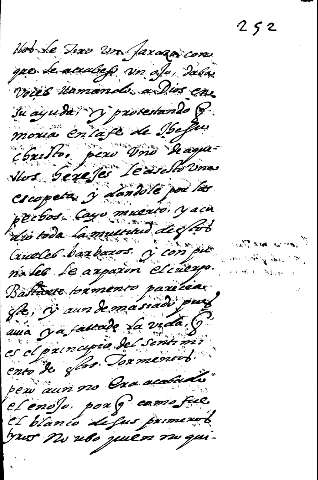 252
llos le tiro un farazo con
que le atrabeso un ojo, daba
voces llamando a Dios en
su ayuda, y protestando q
moria en la fe de Jhesu
christo, pero uno de aque
llos herejes le asesto una
escopeta, y dandole por los
pechos cayo muerto, y acu
dio toda la multitud de estos
crueles barbaros, y con pu
ñales le arparon el cuerpo.
Bastante tormento parecia
este, y aun demasiado pues
avia ya faltado la vida, q
es el principio del sentimi
ento de estos tormentos
pero aun no era acabado
el enojo, por q como fue
el blanco de sus primeros
tiros no ubo quien no qui-